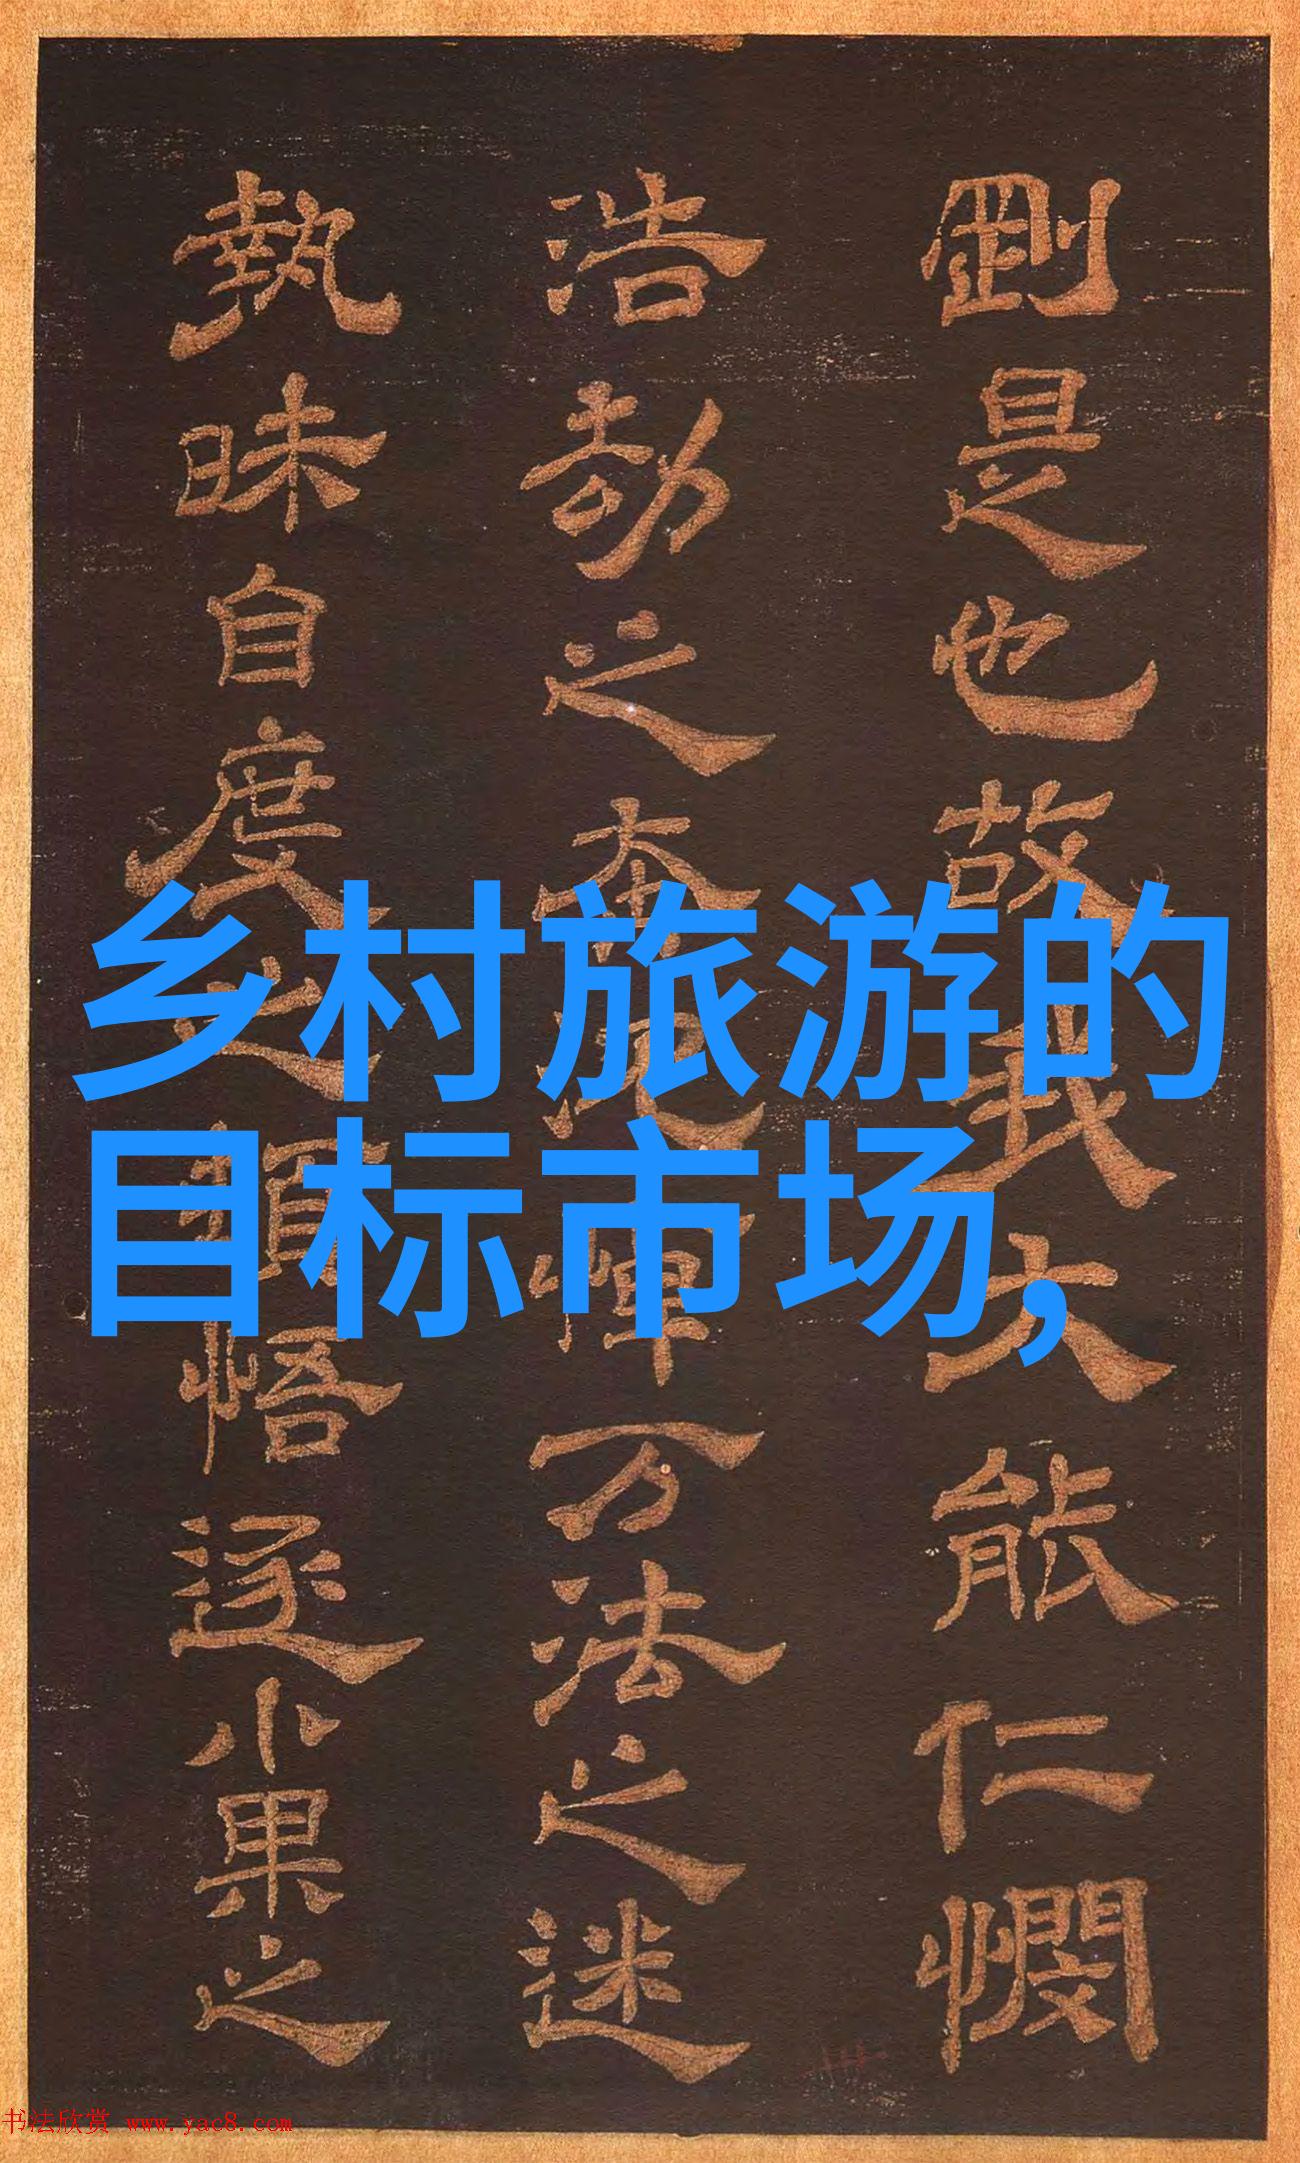 乡村旅游的
目标市场,
剛是也故我大能仁憫
浩劫之本悼万法之迷
執昧自度之頓悟逐小果之
书法欣赏 www.yac8.com